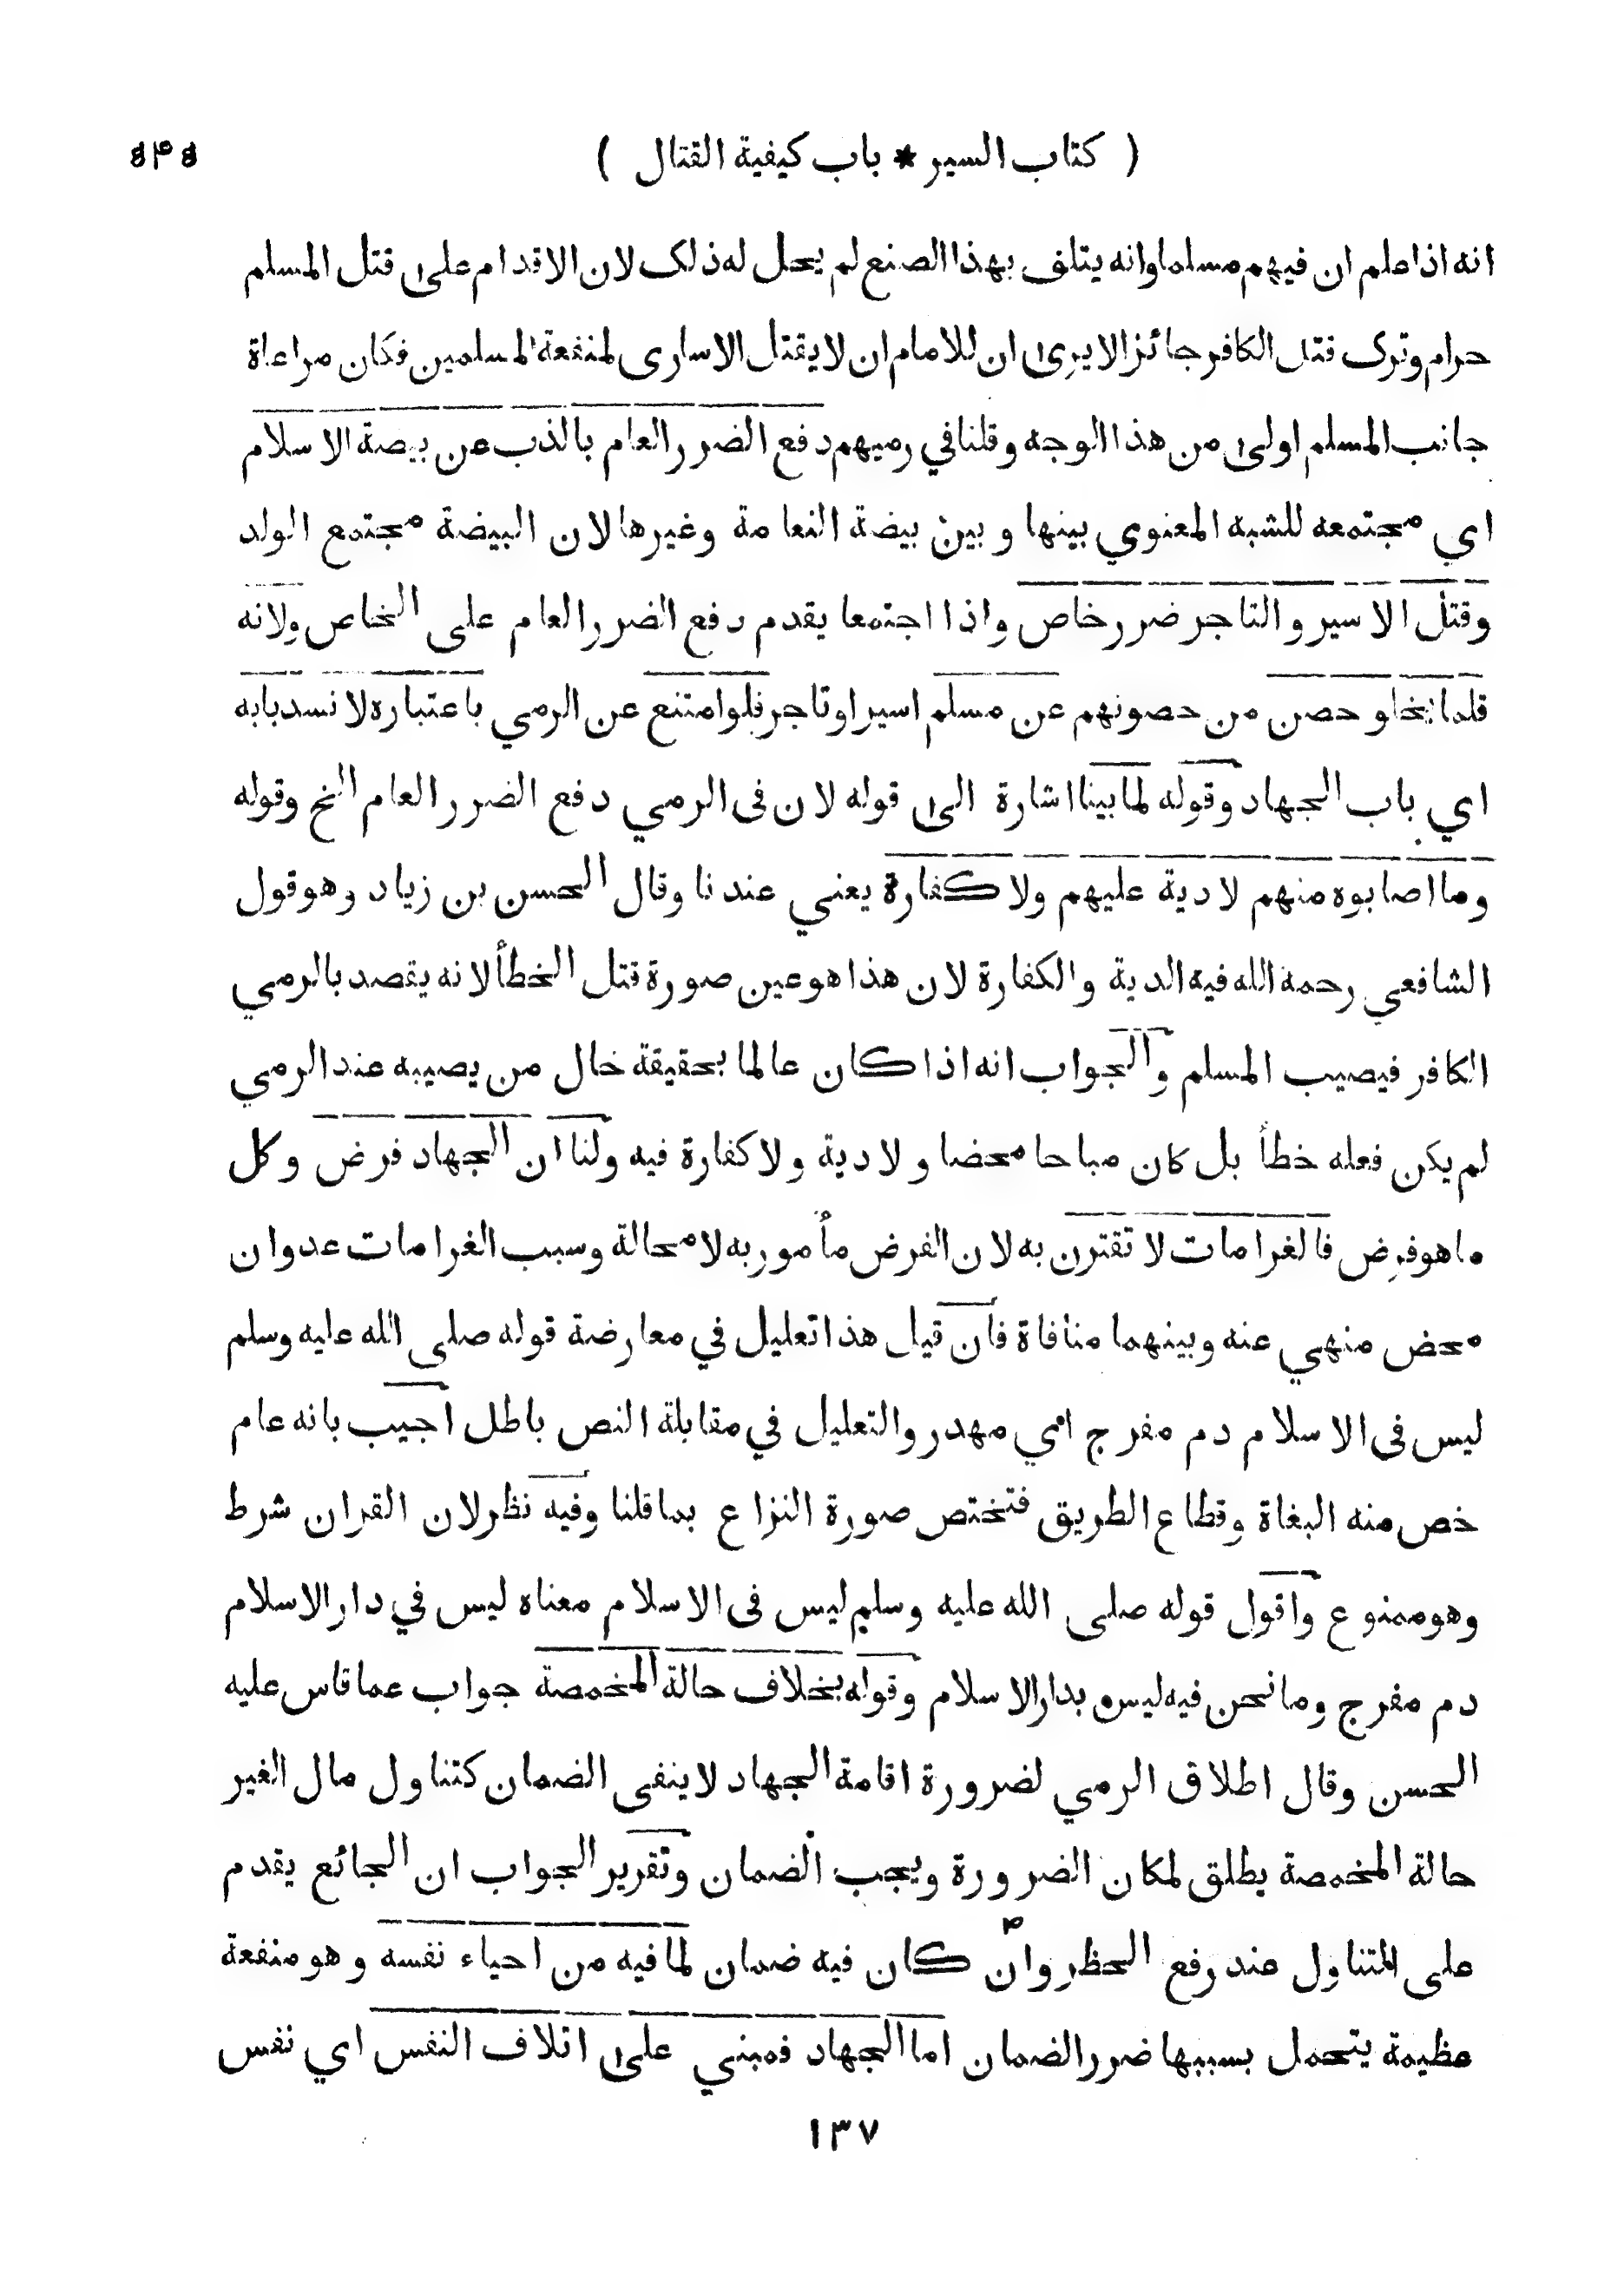 ( كتاب السير * باب كيفية القتال ) ٥٤٥
انه اذا علم ان فيهم مسلما وانه يتلف بهذا الصنع لم يحل له ذلك لان الاقدام على قتل المسلم
حرام وترك قتل الكافر جائز الا يرى ان للامام ان لا يقتل الاسارى لمنفعة المسلمين فكان مراعاة
جانب المسلم اولى من هذا الوجه وقلنا في رميهم دفع الضرر العام بالذب عن بيضة الاسلام
اي مجتمعه للشبه المعنوي بينها وبين بيضة النعامة وغيرها لان البيضة مجتمع الولد
وقتل الاسير والتاجر ضرر خاص واذا اجتمعا يقدم دفع الضرر العام على الخاص ولانه
قلما يخلو حصن من حصونهم عن مسلم اسير او تاجر فلو امتنع عن الرمي باعتباره لانسد بابه
اي باب الجهاد وقوله لما بينا اشارة الى قوله لان فى الرمي دفع الضرر العام الخ وقوله
وما اصابوه منهم لا دية عليهم ولا كفارة يعني عندنا وقال الحسن بن زياد وهو قول
الشافعي رحمة الله فيه الدية والكفارة لان هذا هو عين صورة قتل الخطأ لانه يقصد بالرمي
الكافر فيصيب المسلم والجواب انه اذا كان عالما بحقيقة حال من يصيبه عند الرمي
لم يكن فعله خطأ بل كان مباحا محضا ولا دية ولا كفارة فيه ولنا ان الجهاد فرض وكل
ما هو فرض فالغرامات لا تقترن به لان الفرض مأمور به لا محالة وسبب الغرامات عدوان
محض منهي عنه وبينهما منافاة فان قيل هذا تعليل في معارضة قوله صلى الله عليه وسلم
ليس فى الاسلام دم مفرج اي مهدر والتعليل في مقابلة النص باطل اجيب بانه عام
خص منه البغاة وقطاع الطريق فتختص صورة النزاع بما قلنا وفيه نظر لان القران شرط
وهو ممنوع واقول قوله صلى الله عليه وسلم ليس فى الاسلام معناه ليس في دار الاسلام
دم مفرج وما نحن فيه ليس بدار الاسلام وقوله بخلاف حالة المخمصة جواب عما قاس عليه
الحسن وقال اطلاق الرمي لضرورة اقامة الجهاد لا ينفى الضمان كتناول مال الغير
حالة المخمصة يطلق لمكان الضرورة ويجب الضمان وتقرير الجواب ان الجائع يقدم
على التناول عند رفع الحظر وان كان فيه ضمان لما فيه من احياء نفسه وهو منفعة
عظيمة يتحمل بسببها ضرر الضمان اما الجهاد فمبني على اتلاف النفس اي نفس
١٣٧